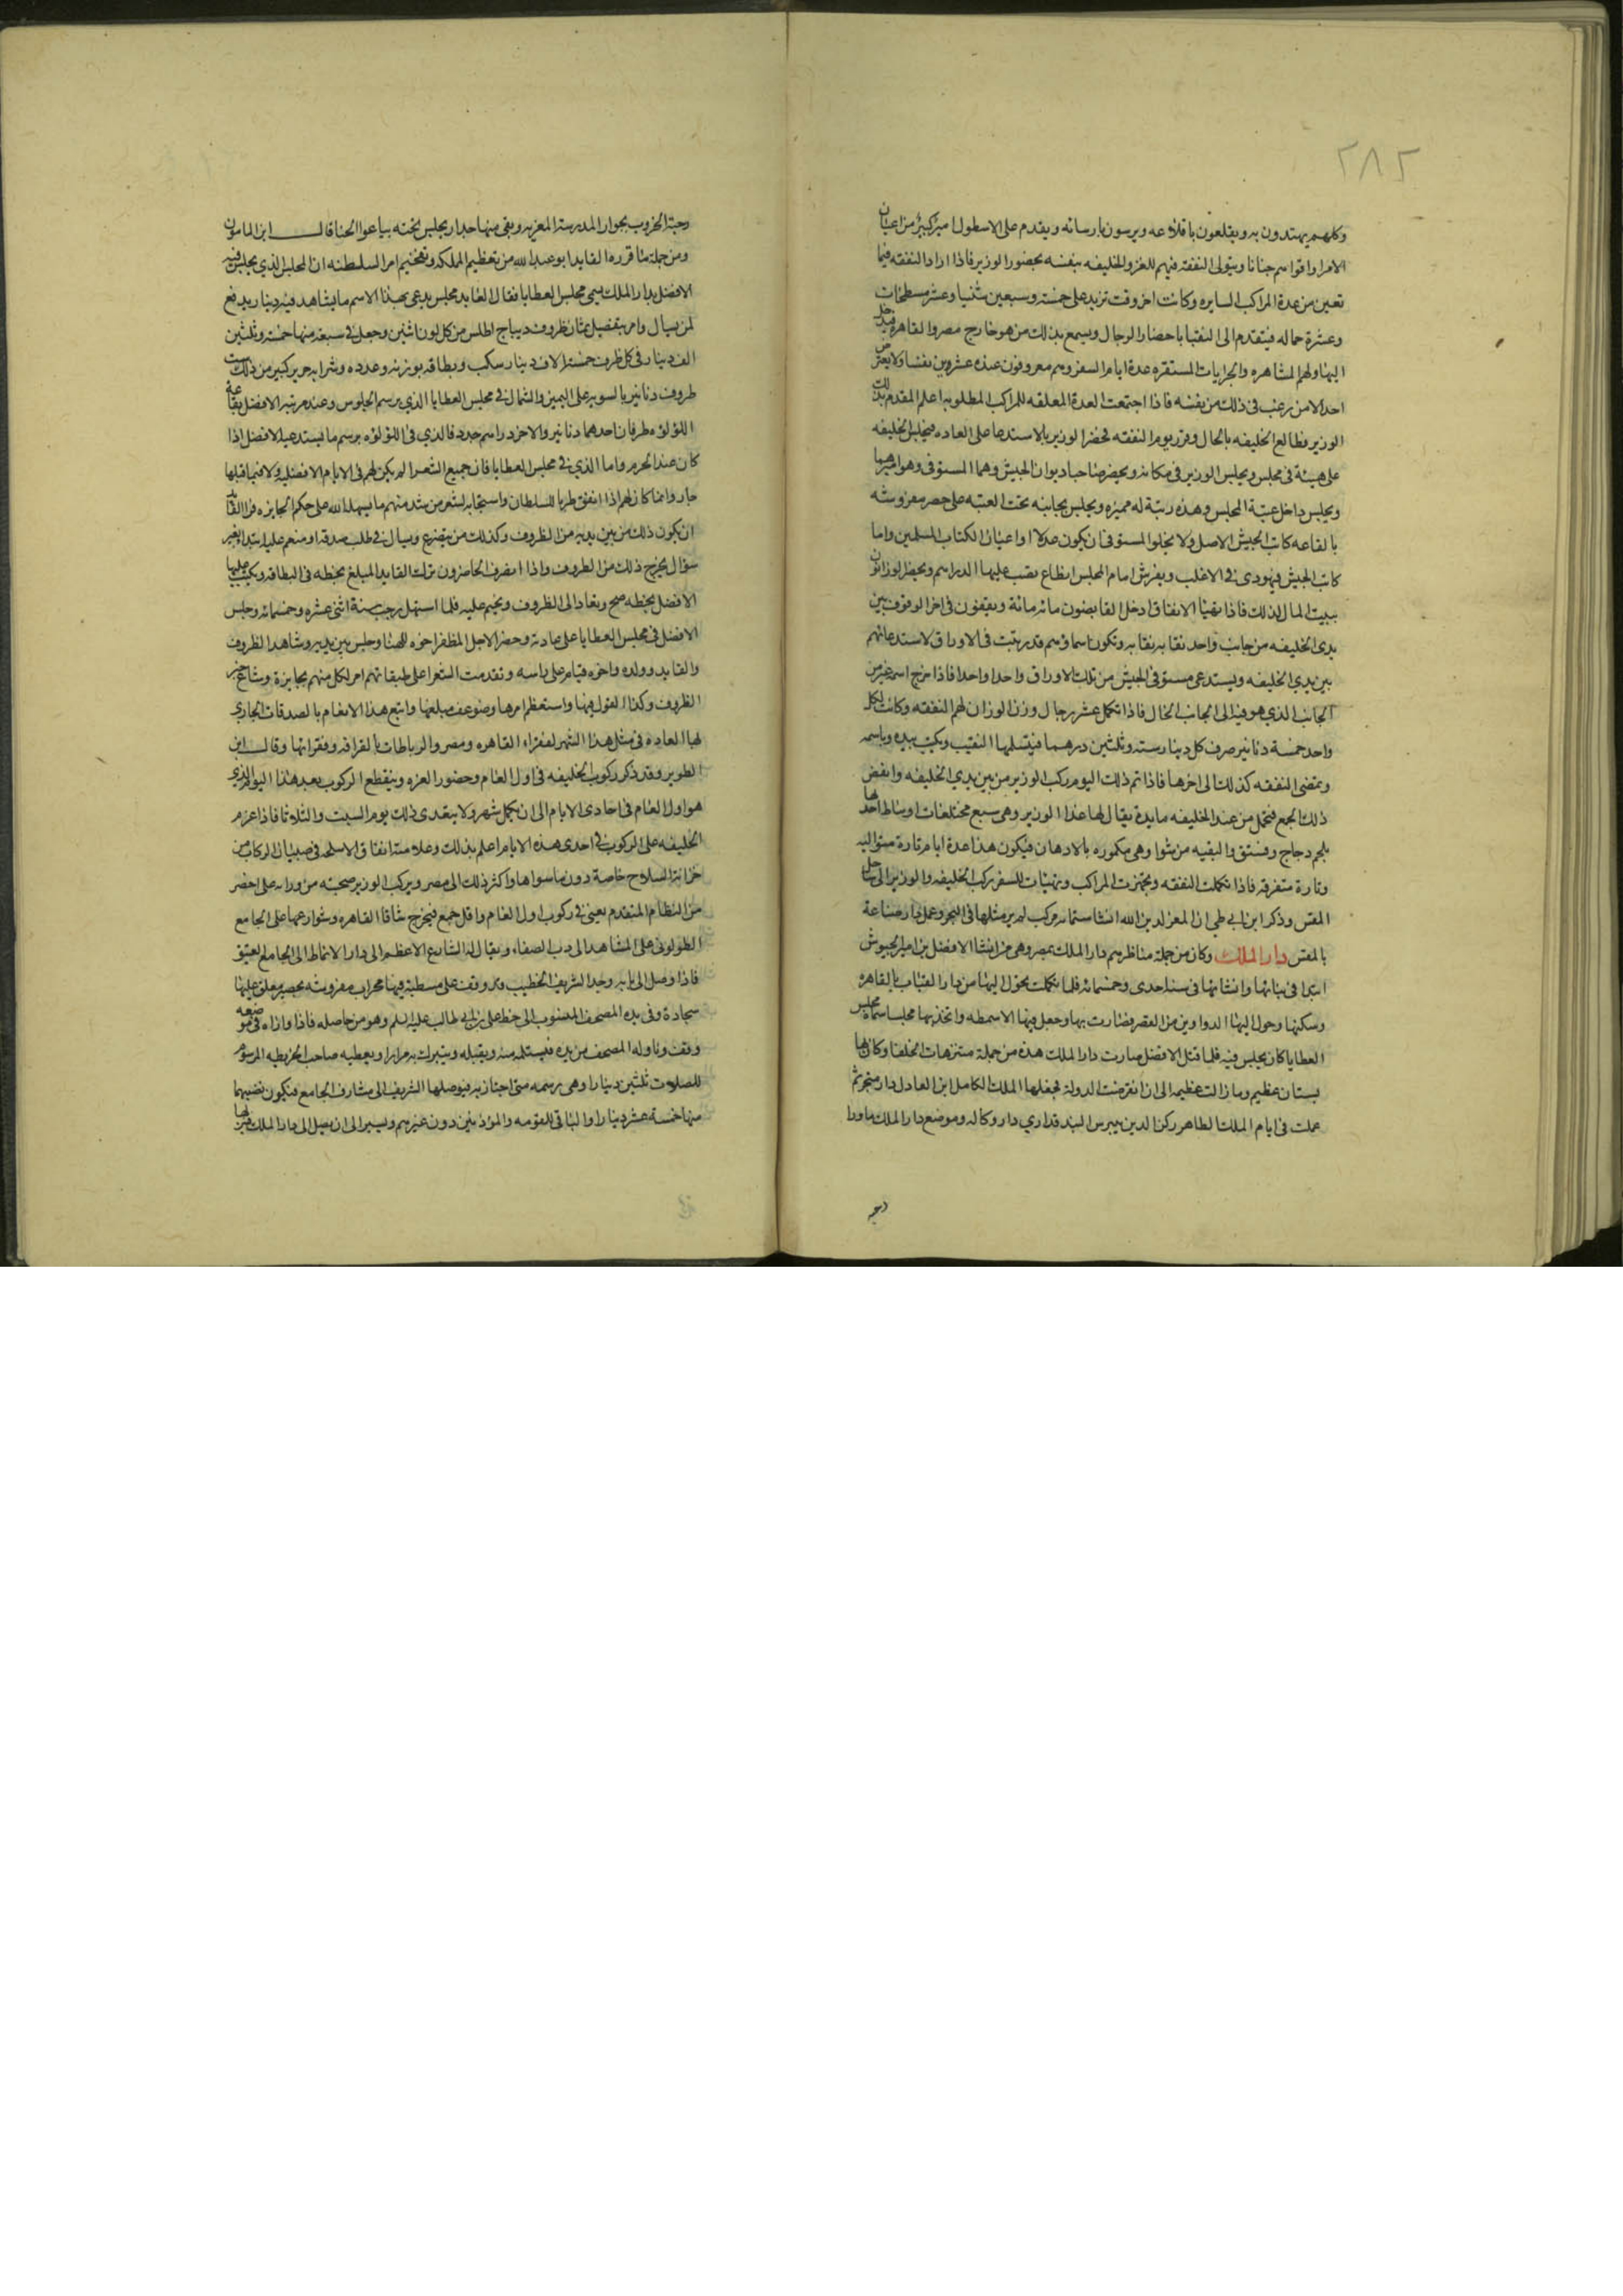 ٢٨٢
وكلهم يهتدون به ويقلعون باقلاعه ويرسون بارسائه ويقدم على الاسطول امير كبير من اعيان
الامرا واقواهم جنانا ويتولى النفقة فيهم للغزو الخليفه بنفسه بحضور الوزير فاذا ارادا النفقه فيما
تعين من عدة المراكب السايره وكانت اخر وقت تزيد على خمسة وسبعين شينيا وعشر مسطحات
وعشرة حماله فيتقدم الى النقبا باحضار الرجال ويسمع بذلك من هو خارج مصر والقاهره فيدخل
اليها ولهم المشاهره والجرايات المستقره عدة ايام السفر وهم معروفون عند عشرين نقيبا ولا يعترض
احد الا من رغب في ذلك من نفسه فاذا اجتمعت العدة المغلقه للمراكب المطلوبه اعلم المقدم بذلك
الوزير فطالع الخليفه بالحال وقرر يوم النفقه فحضر الوزير بالاستدعا على العاده فيجلس الخليفه
على هيئة في مجلس ويجلس الوزير في مكانه ويحضر صاحبا ديوان الجيش وهما المستوفى وهو اميرهما
ويجلس داخل عتبة المجلس وهذه رتبة له مميزه ويجلس بجانبه تحت العتبه على حصر مفروشه
بالقاعه كاتب الجيش الاصل ولا يخلوا المستوفى ان يكون عدلا او اعيان الكتاب المسلمين واما
كاتب الجيش فيهودى في الاغلب ويفرش امام المجلس انطاع تصب عليها الدراهم ويحضر الوزانون
ببيت المال لذلك فاذا تهيا الانفاق ادخل القابضون مائة مائة ويقفون في اخر الوقوف بين
يدى الخليفه من جانب واحد نقابة نقابة وتكون اسماوهم قد رتبت في الاوراق لاستدعائهم
بين يدي الخليفه ويستدعى مستوفى الجيش من تلك الاوراق واحدا واحدا فاذا خرج اسمه عبر من
الجانب الذي هو فيه الى الجانب الخال فاذا تكمل عشرة رجال وزن الوزان لهم النفقه وكانت لكل
واحد خمسة دنانير صرف كل دينار ستة وثلثين درهما فيتسلمها النقيب وتكتب بيده وباسمه
وتمضى النفقه كذلك الى اخرها فاذا تم ذلك اليوم ركب الوزير من بين يدي الخليفه وانفض
ذلك الجمع فتحمل من عند الخليفه مايدة يقال لها غدا الوزير وهى سبع مجنقات اوساط احدها
بلحم دجاج وفستق والبقيه من شوا وهي مكموره بالازهار فيكون هذا عدة ايام تارة متواليه
وتارة متفرقه فاذا تكملت النفقه وتجهزت المراكب وتهيات للسفر ركب الخليفه والوزير الى ساحل
المقس وذكر ابن ابي طي ان المعز لدين الله انشا ستمائة مركب لم ير مثلها في البحر وعمل دار صناعة
بالمقس دار الملك وكان من جملة مناظرهم دار الملك بمصر وهي من انشا الافضل بن امير الجيوش
ابتدا في بنائها وانشائها في سنة احدى وخمسمائه فلما تكملت تحول اليها من دار القباب بالقاهره
وسكنها وحول اليها الدواوين من القصر فصارت بها وجعل فيها الاسمطه واتخذ بها مجلسا سماه مجلس
العطايا كان يجلس فيه فلما قتل الافضل صارت دار الملك هذه من جملة منتزهات الخلفا وكان بها
بستان عظيم وما زالت عظيمه الى ان انقرضت الدولة فجعلها الملك الكامل ابن العادل دار متجر ثم
عملت في ايام الملك الظاهر ركن الدين بيبرس البندقداري دار وكاله وموضع دار الملك ما ورا
رحبة
رحبة الخروب بجوار المدرسة المعزيه وبقى منها جدار يجلس تحته بياعوا الحنا قال ابن المامون
ومن جملة ما قرره القايد ابو عبد الله من تعظيم المملكه وتفخيم امر السلطنه ان المجلس الذي يجلس فيه
الافضل بدار الملك يسمى مجلس العطايا فقال القايد مجلس يدعى بهذا الاسم ما يشاهد فيه دينار يدفع
لمن يسال وامر بتفصيل ثمان ظروف ديباج اطلس من كل لون اثنين وجعل في سبعة منها خمسة وثلثين
الف دينار في كل ظرف خمسة الاف دينار سكب وبطاقه بوزنه وعدده وشرابه حرير كبير من ذلك ست
ظروف دنانير بالسويه على اليمين والشمال في مجلس العطايا الذي برسم الجلوس وعند مرتبة الافضل بقاعة
اللؤلؤه ظرفان احدهما دنانير والاخر دراهم جدد فالذي في اللؤلؤه برسم ما يستدعيه الافضل اذا
كان عند الحرم واما الذي في مجلس العطايا فان جميع الشعرا لم يكن لهم في الايام الافضليه ولا فيما قبلها
جار وانما كان لهم اذا اتفق طرب السلطان واستجابه لشعر من ينشد منهم ما يسهله الله على حكم الجايزه فراى القايد
ان يكون ذلك من بين يديه من الظروف وكذلك من يتضرع ويسال في طلب صدقه او منعم عليه ابتدا بغير
سؤال يخرج ذلك من الظروف واذا انصرف الحاضرون نزلت القايد المبلغ بخطه في البطاقه ويكتب عليها
الافضل بخطه صح وتعاد الى الظروف ويختم عليه فلما استهل رجب سنة اثنى عشره وخمسمائه وجلس
الافضل في مجلس العطايا على عادته وحضر الاجل المظفر اخوه للهنا وجلس بين يديه وشاهد الظروف
والقايد وولده واخوه قيام على راسه وتقدمت الشعرا على طبقاتهم امر لكل منهم بجايزة وشاع خبر
الظروف وكثر القول فيها واستعظم امرها وضوعف مبلغها واتبع هذا الانعام بالصدقات الجاري
لها العاده في مثل هذا الشهر لفقراء القاهره ومصر والرباطات بالقرافه وفقرائها وقال ابن
الطوير وقد ذكر ركوب الخليفه في اول العام وحضور الغره وينقطع الركوب بعد هذا اليوم الذي
هو اول العام في احادى الايام الى ان يكمل شهر ولا يتعدى ذلك يوم السبت والثلاثا فاذا عزم
الخليفه على الركوب في احدى هذه الايام اعلم بذلك وعلامته انفاق الاسلحه في صبيان الركاب من
خزانة السلاح خاصة دون ما سواها واكثر ذلك الى مصر ويركب الوزير صحبته من ورائه على اخصر
من النظام المتقدم يعنى في ركوب اول العام واقل جمع فيخرج شاقا القاهره وشوارعها على الجامع
الطولونى على المشاهد الى درب الصفاء ويقال له الشارع الاعظم الى دار الانماط الى الجامع العتيق
فاذا وصل الى بابه وجد الشريف الخطيب قد وقف على مسطبة فيها محراب مفروشه بحصير معلق عليها
سجادة وفى يده المصحف المنسوب الى خط على بن ابي طالب عليه السلم وهو من حاصله فاذا وازاه في موضعه
وقف وناوله المصحف من يده فيستلمه منه ويقبله ويتبرك به مرارا ويعطيه صاحب الخريطه المرسوم
للصلات ثلثين دينارا وهى رسمه متى اجتاز به فيوصلها الشريف الى مشارف الجامع فيكون نصيبهما
منها خمسة عشر دينارا والباقى للقومه والمؤذنين دون غيرهم ويسير الى ان يصل الى دار الملك فينزلها